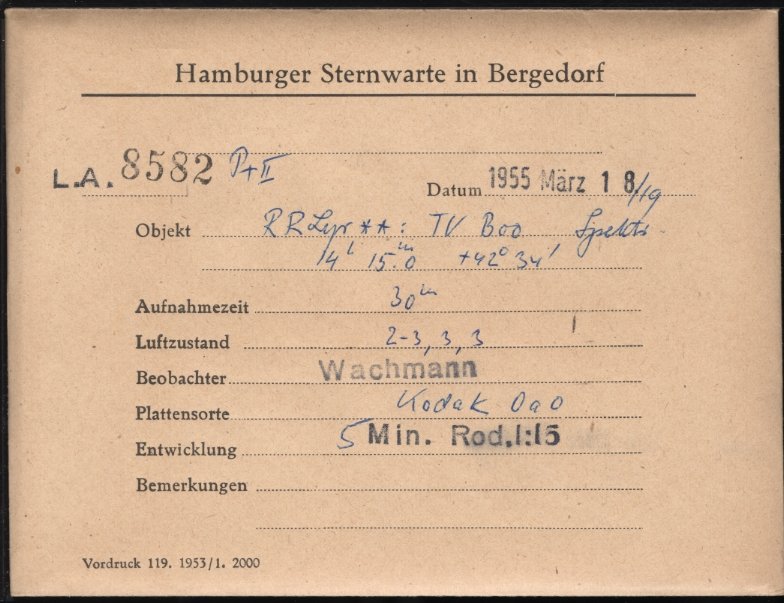 Hamburger Sternwarte in Bergedorf
L.A. 8582 P+II
Datum 1955 März 18/19
Objekt RR Lyr **: TV Boo Spektr.
14h 15m.0 +42° 34'
Aufnahmezeit 30m
Luftzustand 2-3, 3, 3
Beobachter Wachmann
Plattensorte Kodak OaO
Entwicklung 5 Min. Rod.1:15
Bemerkungen
Vordruck 119. 1953/1. 2000